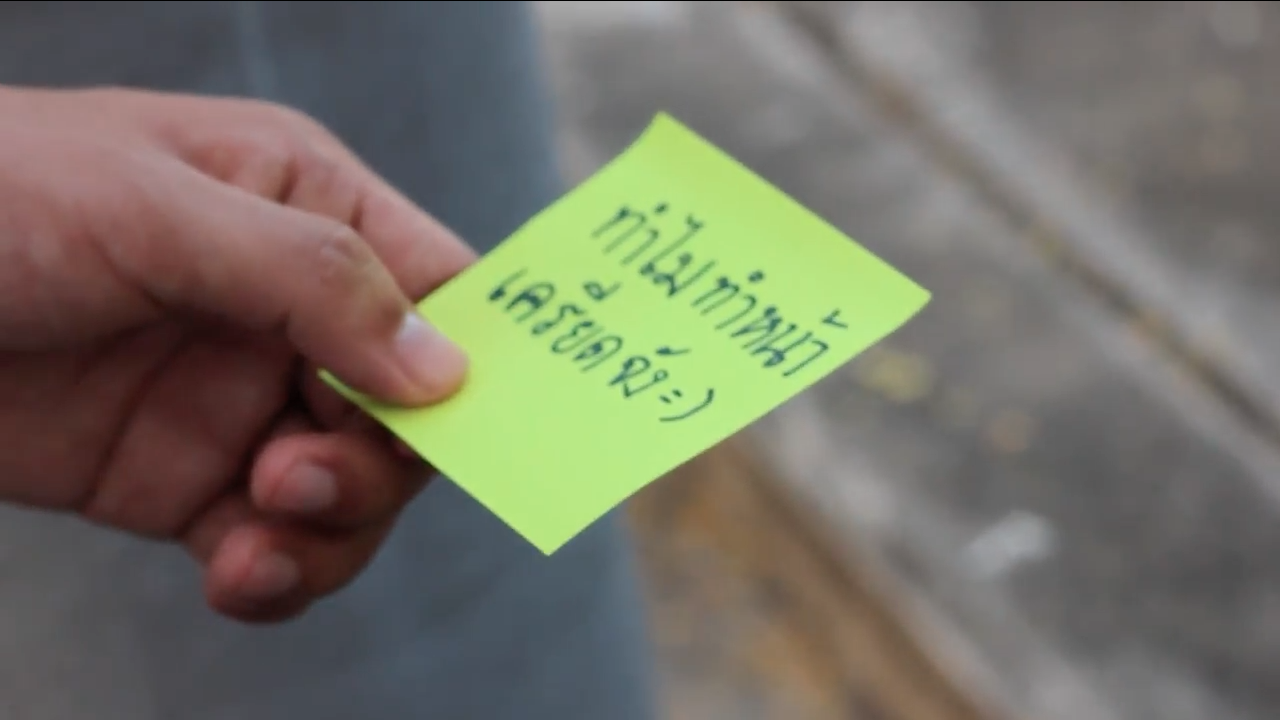 ทำไมทำหน้า
เครียดจัง=)